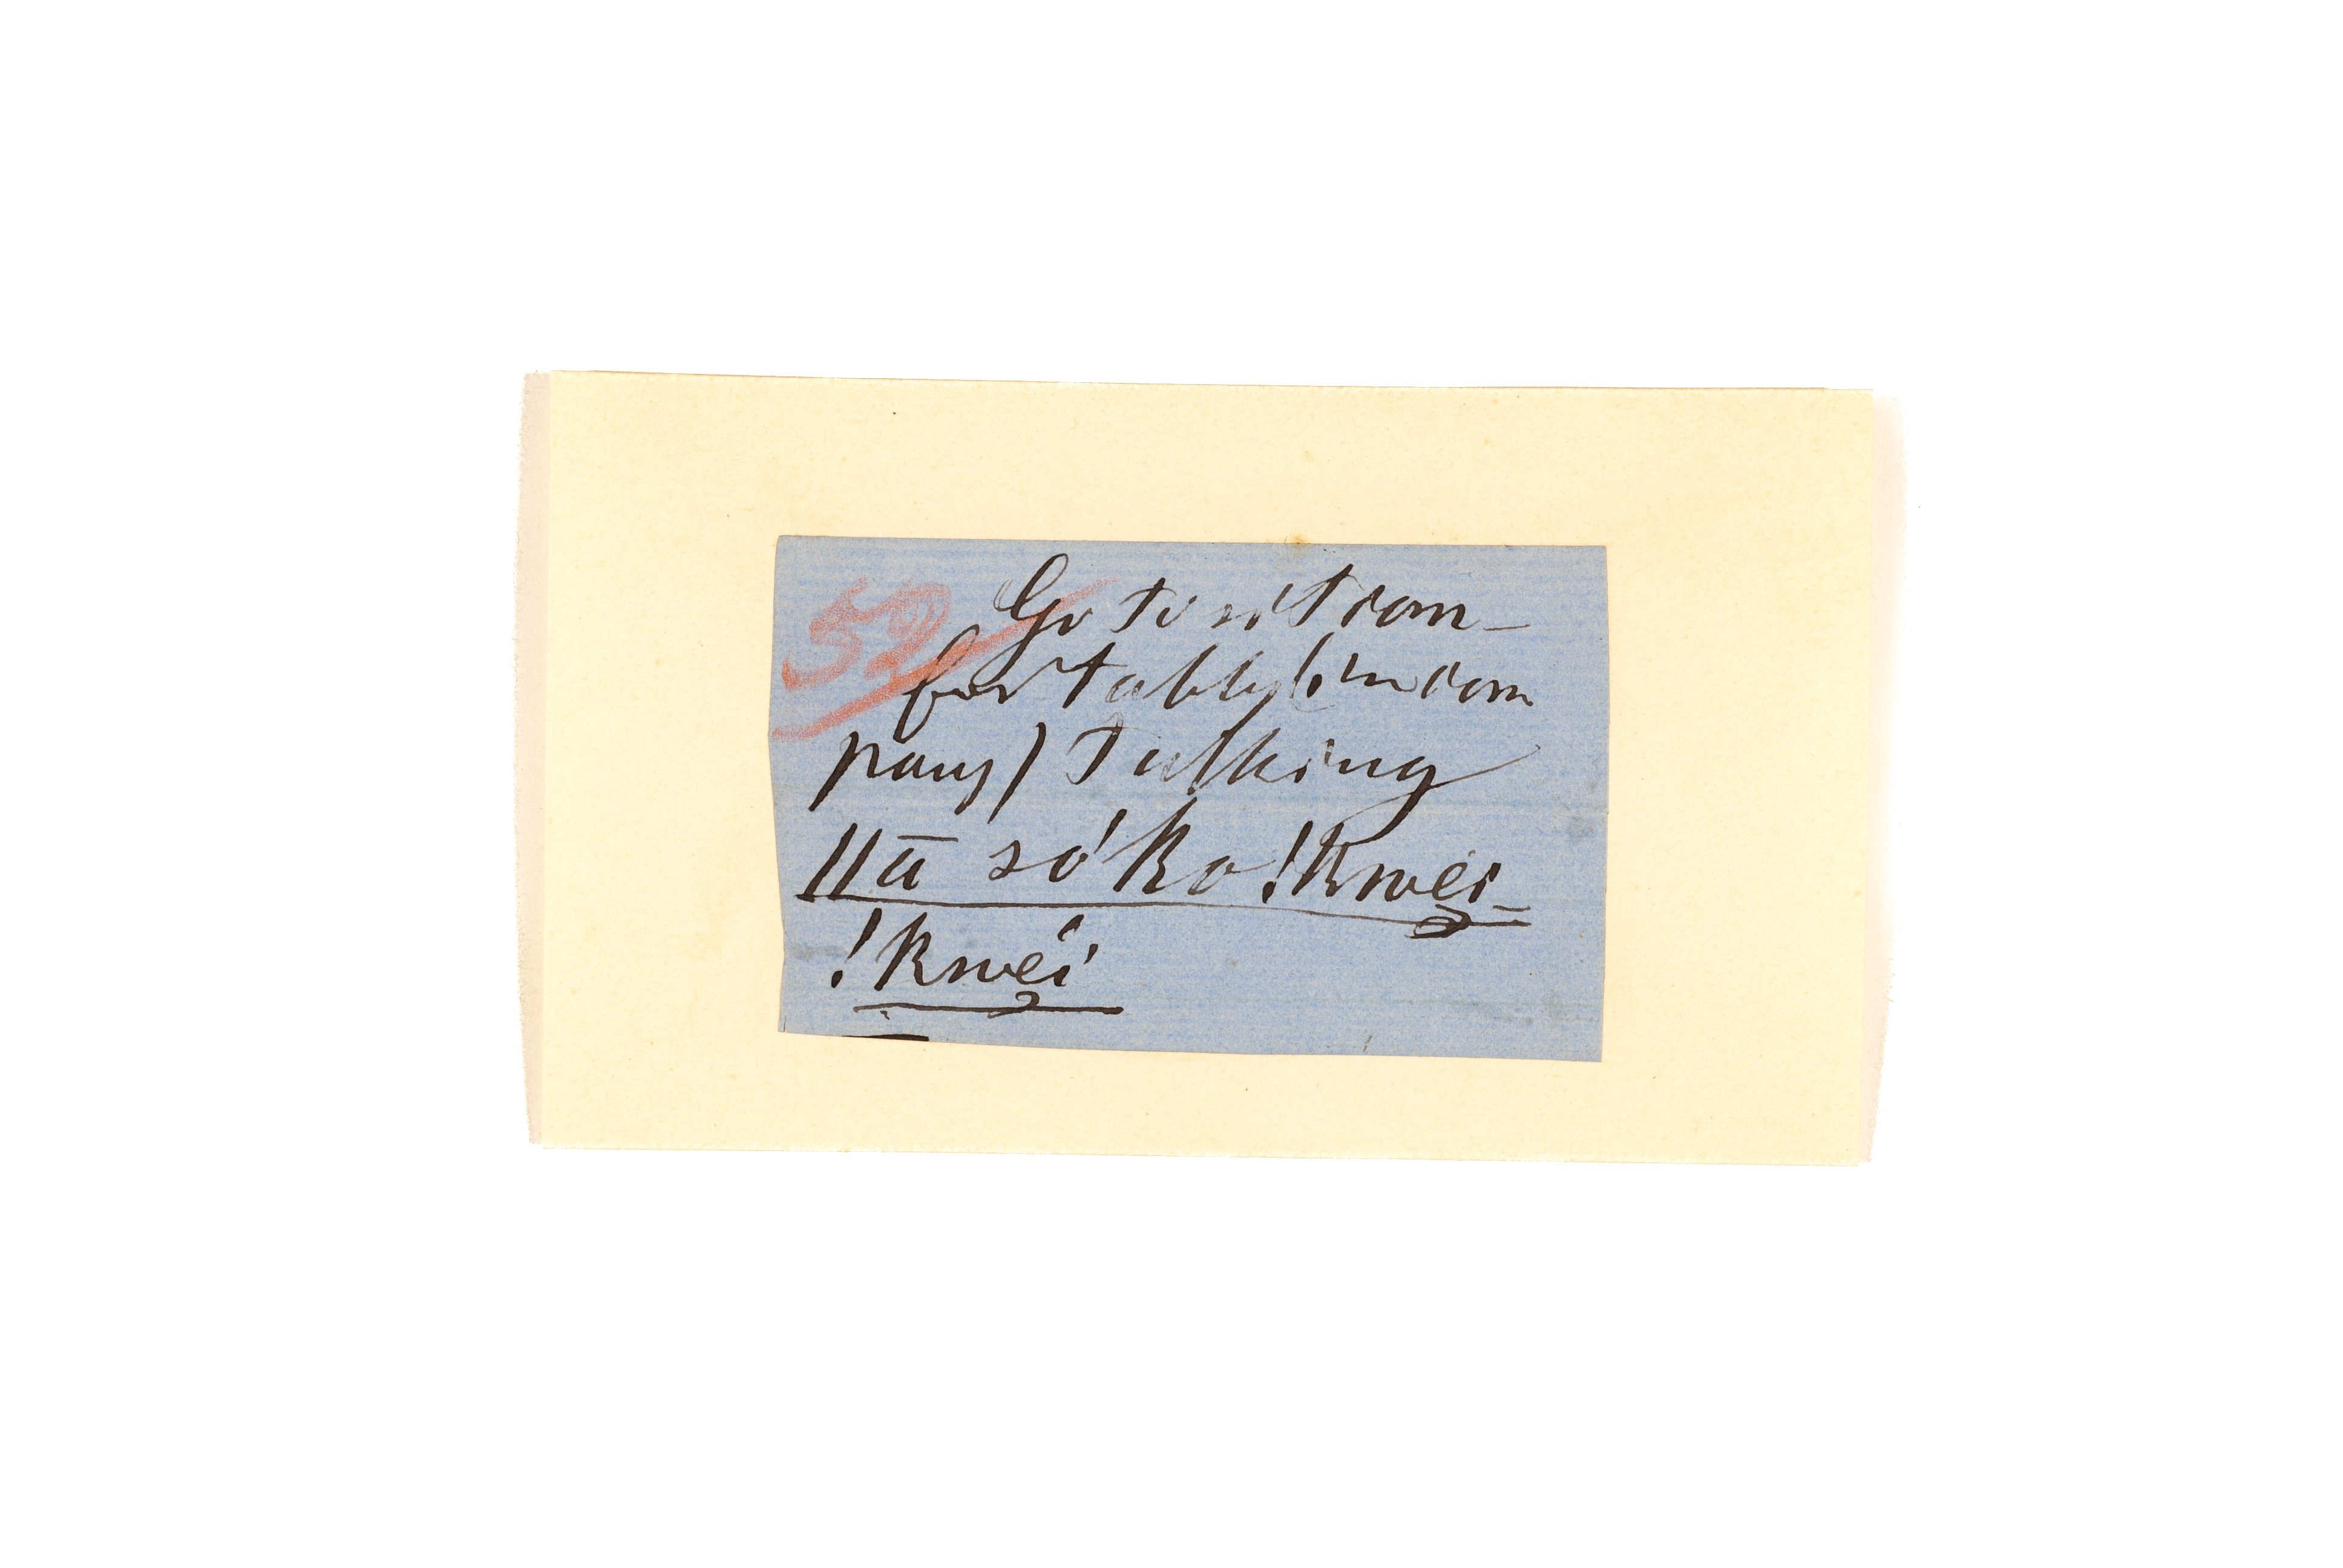 52
Go to sit com-
fortably (in com
pany) talking
ǁā só ko !kwẽi-
!kwẽi